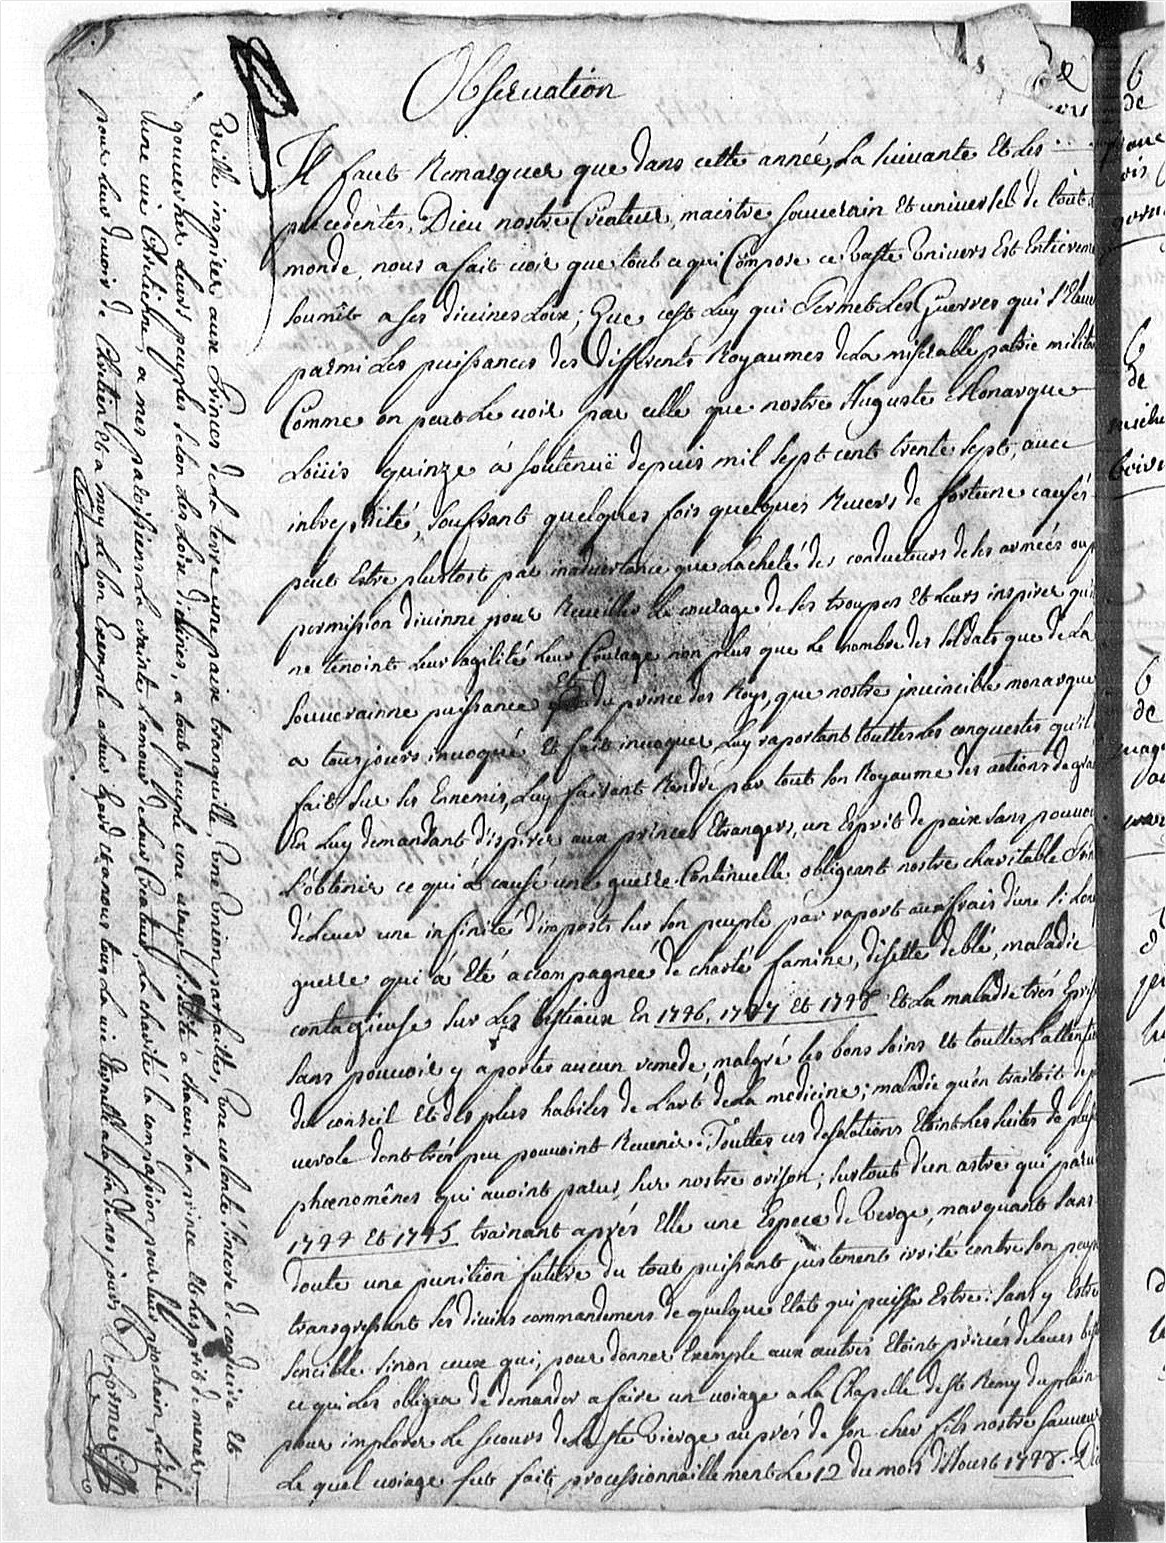 Observation
Il faut Remarquer que dans cette année, La suivante Et Les
precedentes, Dieu nostre Createur, maistre souuerain Et uniuersel de tout
monde, nous a fait uoir que tout ce qui Compose ce Vaste Vniuers Est Entierem
soumît a ses diuines Loix; Que cest Luy qui Permet Les Guerres qui s'Eleu
parmi Les puissances des differents Royaumes de La miserable patrie milita
Comme on peut Le uoir par celle que nostre Auguste Monarque
Loüis quinze à soutenuë depuis mil sept cent trente sept, auec
intrepidité, soufrant quelques fois quelques Reuers de fortune causés
peut Estre plustost par inaduertance que Lacheté des conducteurs de ses armées ou p
permission diuinne pour Reueiller le courage de ses troupes Et Leurs inspirer qui
ne tenoint Leur agilité Leur Courage non plus que Le nombre des soldats que de La
souuerainne puissance du prince des Roys, que nostre inuincible monarque
a tousjours inuoqué Et fait inuoquer, Luy raportant touttes Les conquestes qu'il
fait sur ses Ennemis, Luy faisant Rendre par tout son Royaume des actions de gra
En Luy demandant d'ispirer aux princes Etrangers, un Esprit de paix sans pouuoi
L'obtenir ce qui à causé une guerre Continuelle obligeant nostre charitable Prin
d'éleuer une infinité d'imposts sur son peuple par raport aux frais d'une si Lon
guerre qui à Eté accompagnée de charté famine, disette de blé, maladie
contagieuse sur Les bestiaux En 1746, 1747 Et 1748 Et La maladie trés Epri
sans pouuoir y aporter aucun remede, malgré les bons soins Et toutte L'attenti
du conseil Et des plus habiles de L'art de La medicine; maladie qu'on traitoit de p
uerole dont trés peu pouuoint Reuenir. Touttes ces desolations Etoint Les suites de plus
phœnomênes qui auoint parus, sur nostre orison; surtout d'un astre qui paru
1744 Et 1745 trainant aprés Elle une Espece de Verge, marquant sans
doute une punition future du tout puissant justement irrité contre son peup
transgressant ses diuins commandemens de quelque Etat qui puisse Estre: sans y Estre
sencible sinon ceux qui, pour donner Exemple aux autres Etoint priués de leurs bes
ce qui Les obligea de demander a faire un uoiage a La Chapelle de St Remy du plain
pour implorer Le secours de La ste Vierge auprés de son cher fils nostre sauueur
Le quel uoiage fut fait processionnaillement Le 12 du mois d'Aoust 1748. Di
Veille inspirer aux Princes de La terre une paix tranquille, une Union parfaitte, une uolonté sincere de conduire Et
gouuerner Leurs peuples selon des Loix diuines, a tout peuple une a chacun son prince Et Lesprit de mener
d'une uie Chretienne, a mes paroissiens La crainte L'amour de Leur Createur, La charité la compassion pour Leur prochain, Le zele
pour Leur deuoir de Chretien Et a moy Le bon Exemple a Leur Egard Et a nous tous La uie Eternelle a La fin de nos jours. Delorme Curé